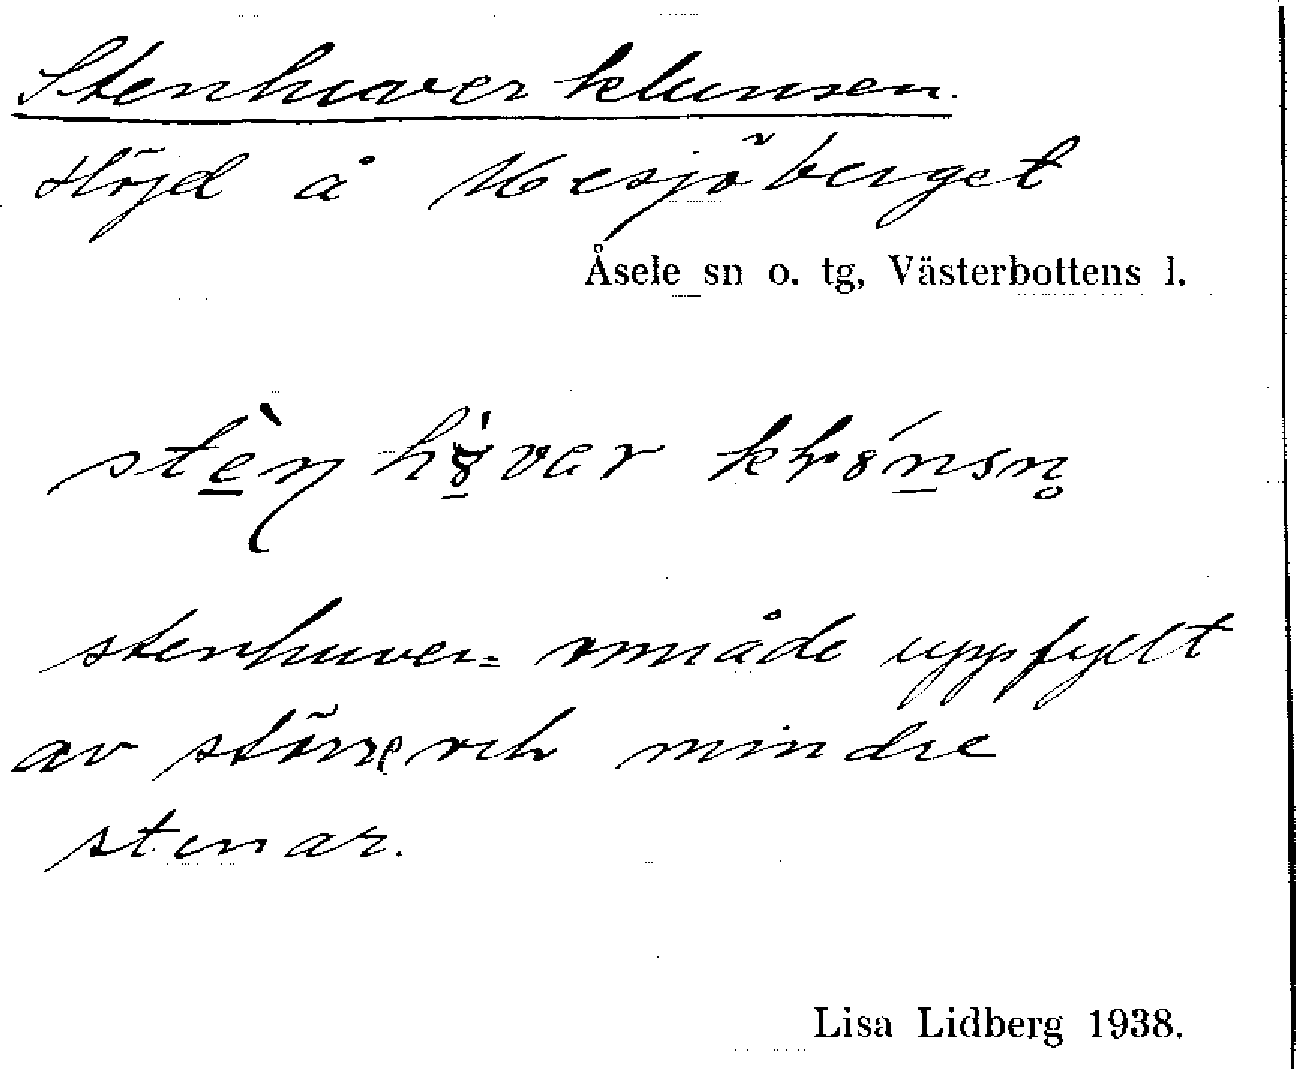 Stenhuverklunsen.
Höjd å Mesjöberget
Åsele sn o. tg, Västerbottens l.
stenhuver= område uppfyllt
av större och mindre
stenar.
Lisa Lidberg 1938.